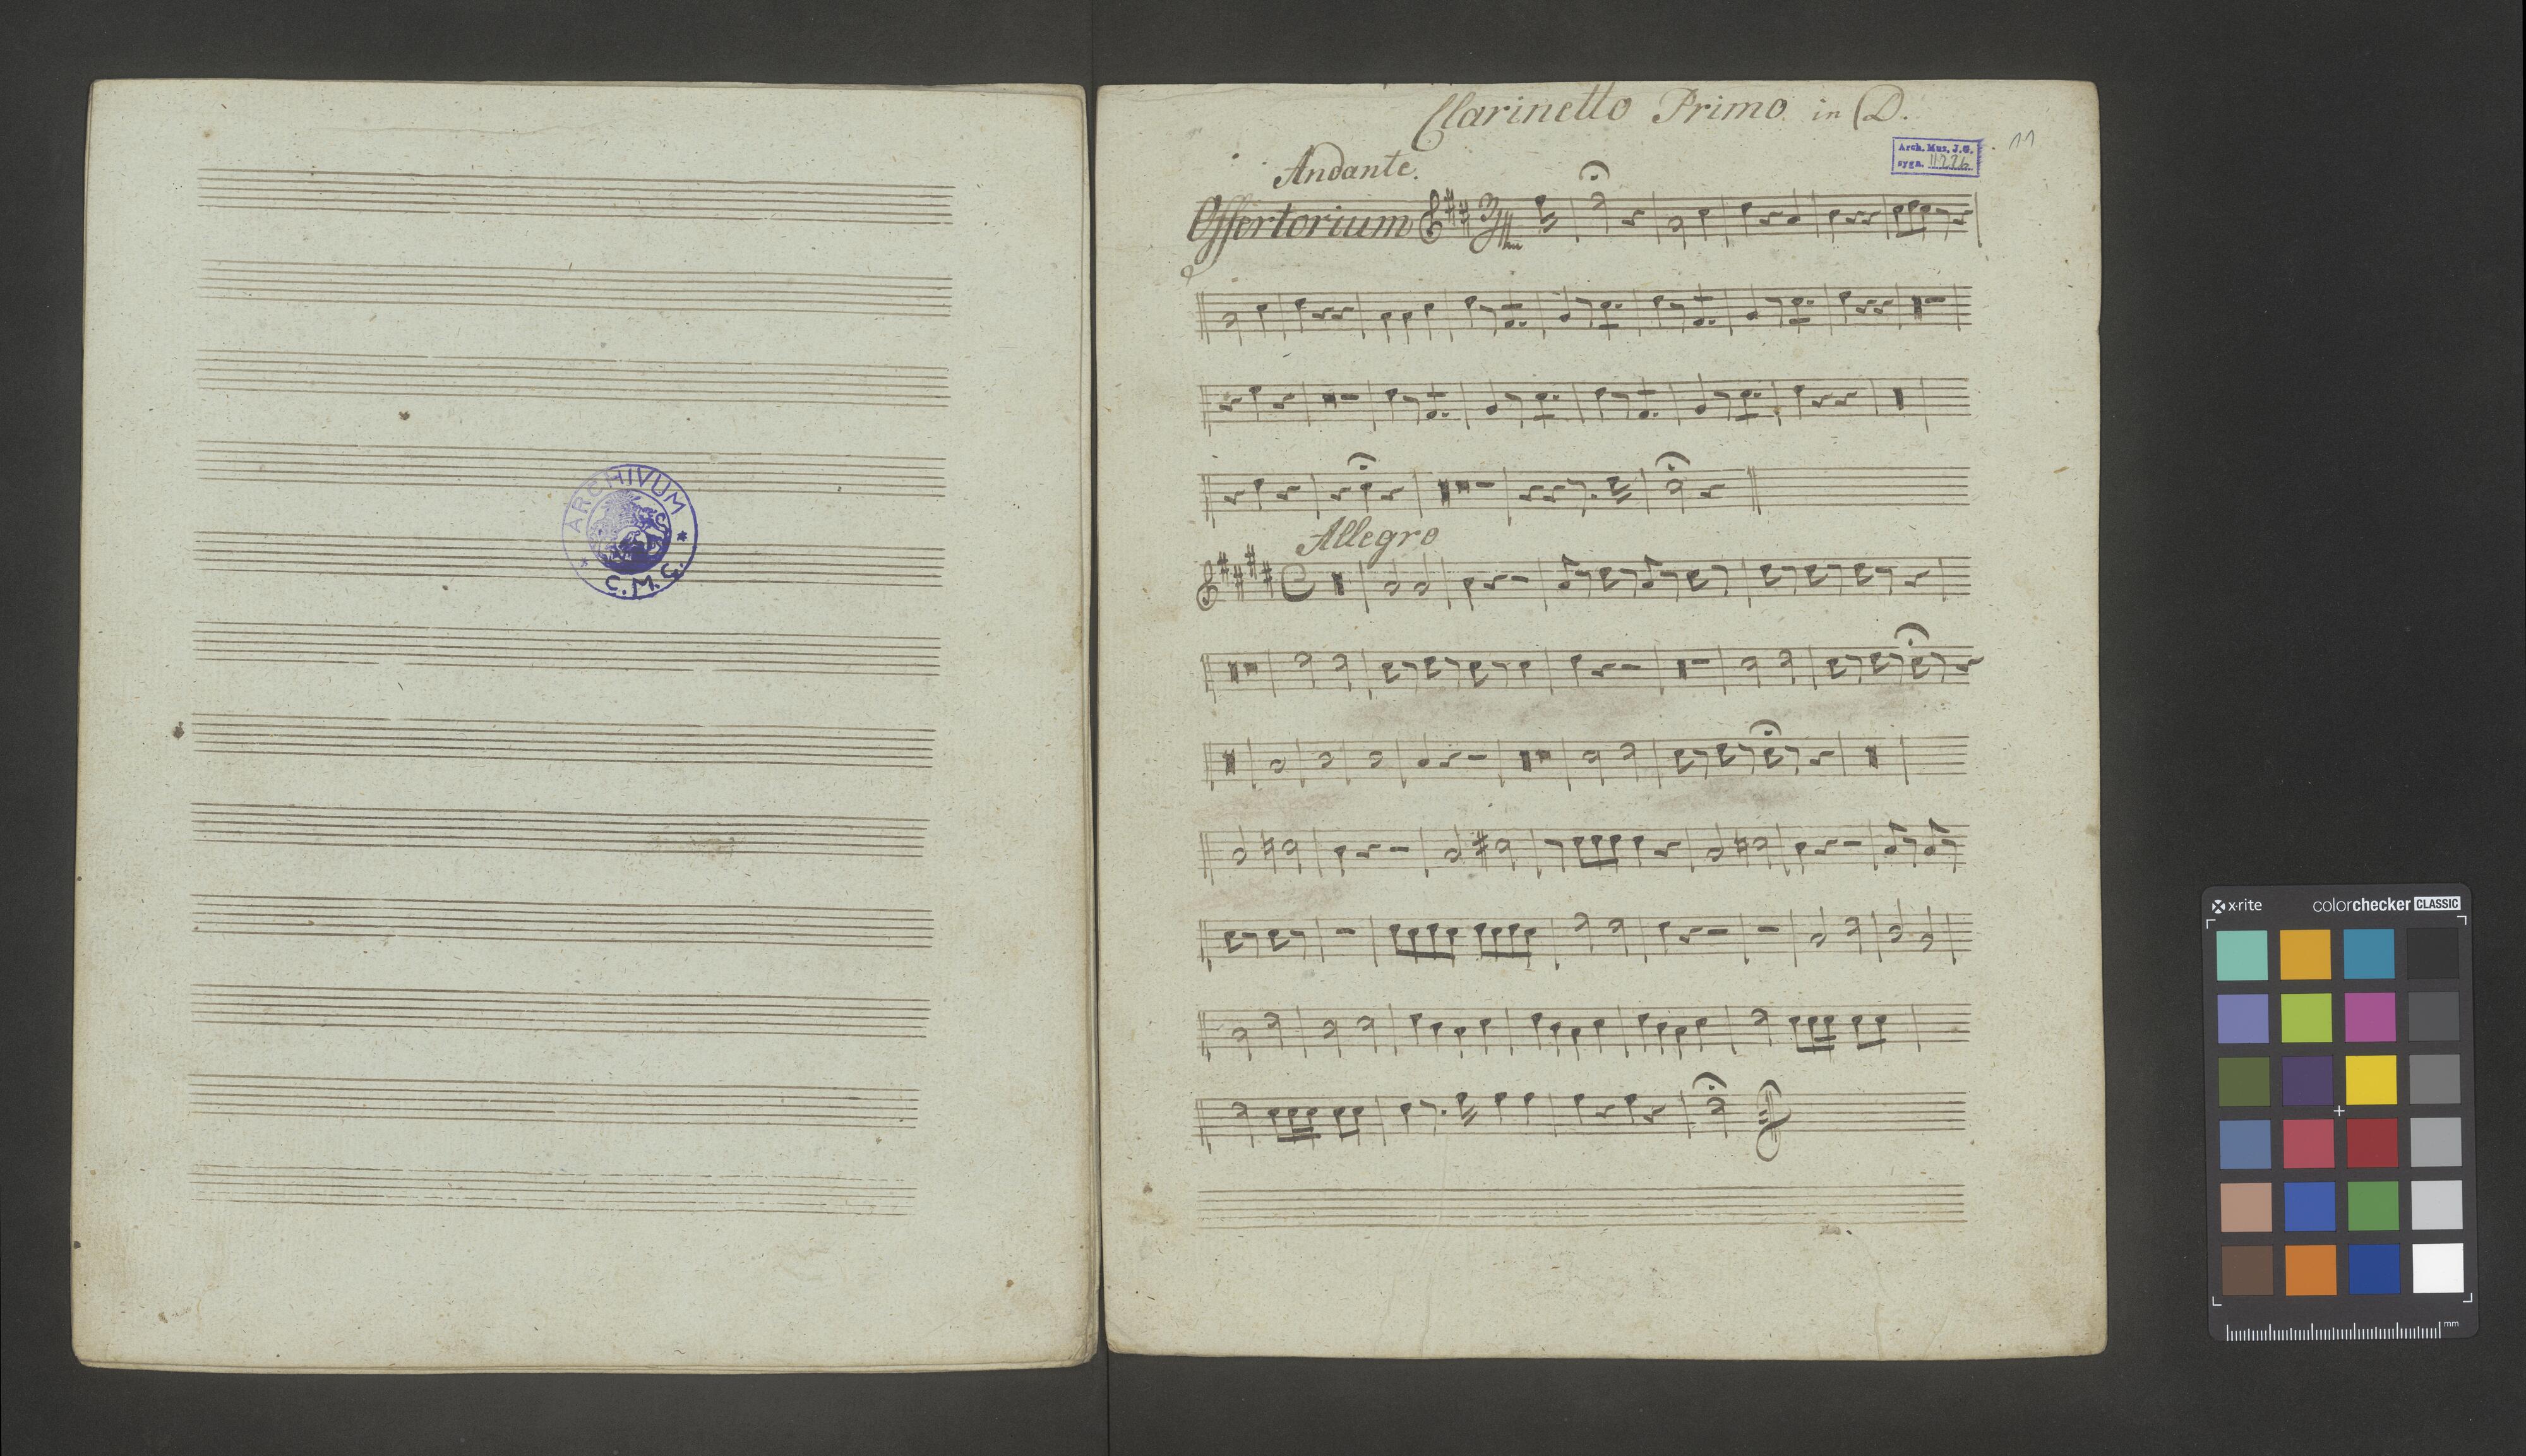 ARCHIVUM
C.M.G.
Clarinetto Primo in D.
Arch. Mus. J.G.
sygn. II 226
11
Andante.
Offertorium
Allegro
x·rite
colorchecker CLASSIC
mm